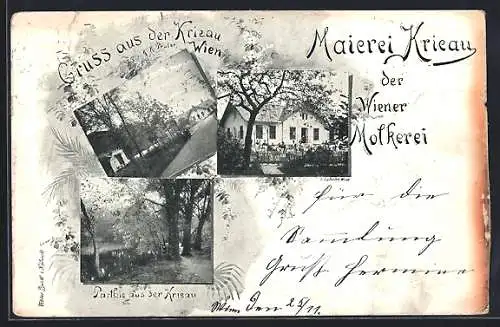 Gruss aus der Krieau
K. K. Prater. Wien
Maierei Krieau
der
Wiener
Molkerei
Parthie aus der Krieau
für die
Sammlung
Gruß Hermine
Wien, den 25/11.